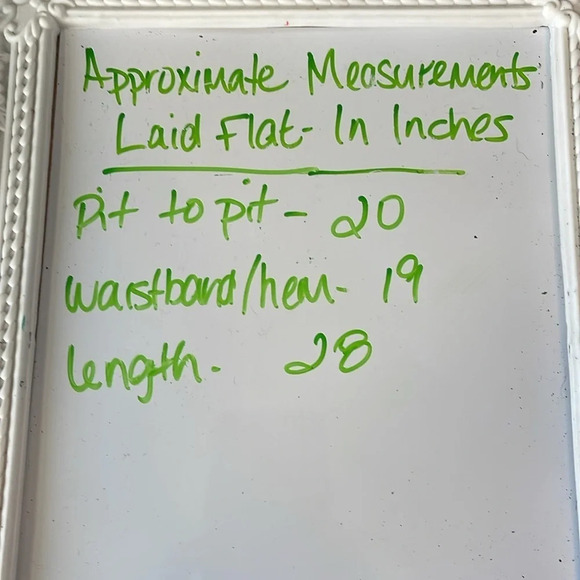 Approximate Measurements
Laid Flat - In Inches
pit to pit - 20
waistband/hem - 19
length - 28